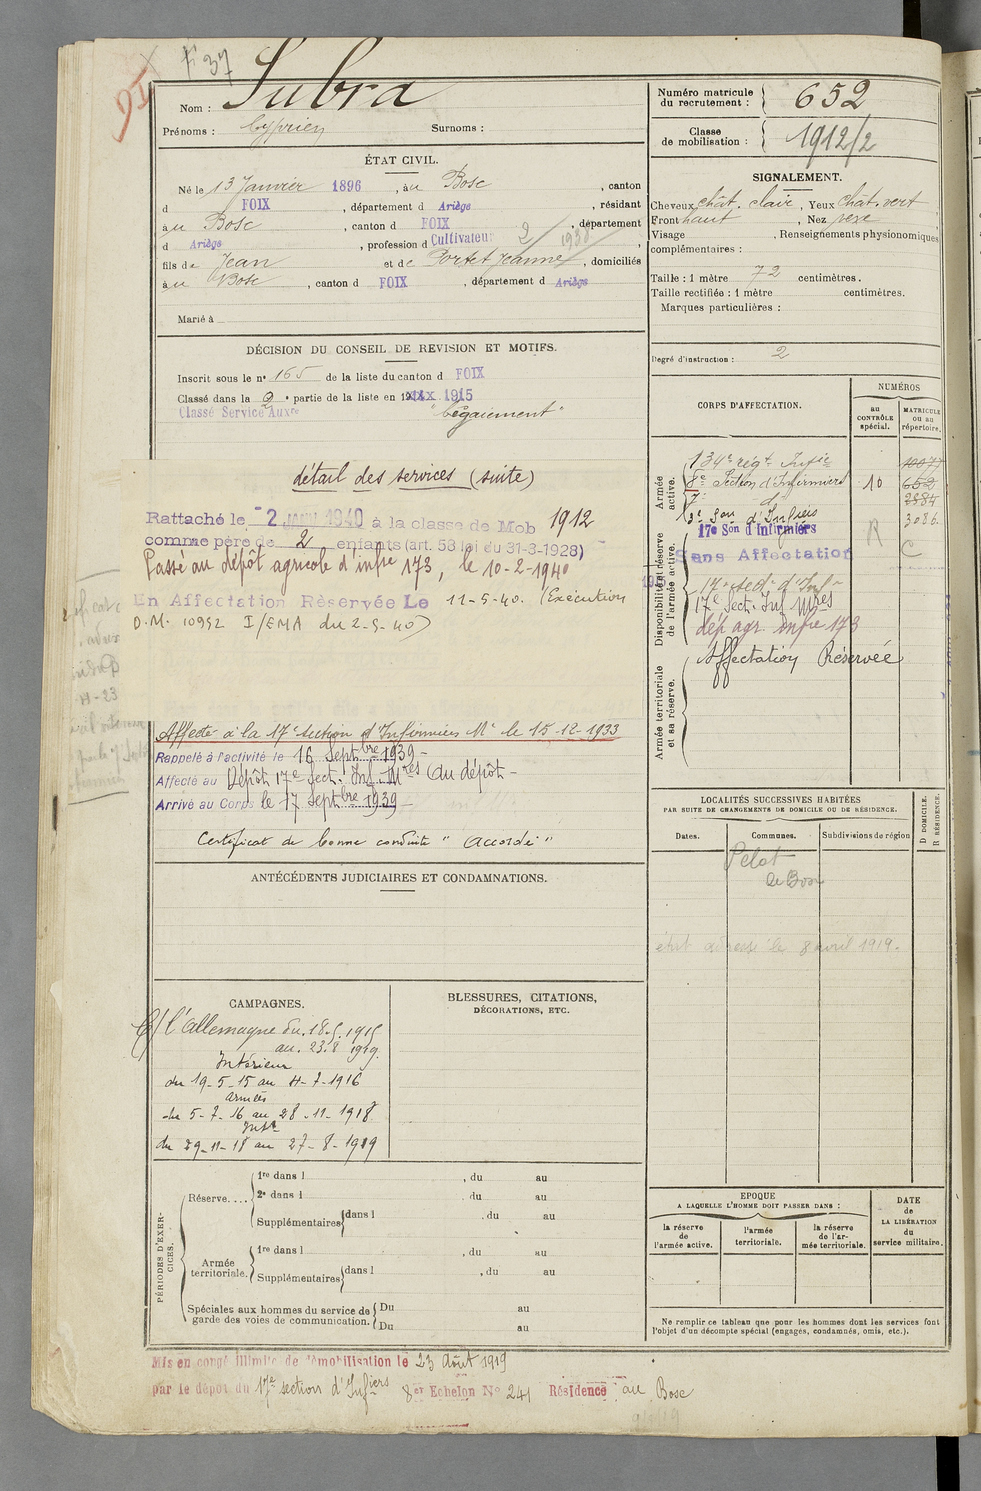 F° 37
Nom : Subra
Prénoms : Cyprien Surnoms :
ÉTAT CIVIL.
Né le 13 Janvier 1896, à u Bosc, canton
d FOIX, département d Ariège, résidant
à u Bosc, canton d FOIX, département
d Ariège, profession d Cultivateur
fils de Jean et de Portet Jeanne, domiciliés
à u Bosc, canton d FOIX, département d Ariège
Marié à
DÉCISION DU CONSEIL DE REVISION ET MOTIFS.
Inscrit sous le n° 165 de la liste du canton d FOIX
Classé dans la 2 e partie de la liste en 1915
Classé Service Auxre "bégaiement"
détail des services (suite)
Rattaché le -2 JANV 1940 à la classe de Mob 1912
comme père de 2 enfants (art. 58 loi du 31-3-1928)
Passé au dépôt agricole d'infie 173, le 10-2-1940
En Affectation Réservée Le 11-5-40. (Exécution
D.M. 10952 I/EMA du 2-5-40)
Affecté à la 17e section d'Infirmiers Mres le 15-12-1933
Rappelé à l'activité le 16 Septbre 1939 -
Affecté au Dépôt 17e Sect. Inf. Mres (du dépôt -
Arrivé au Corps le 17 Septbre 1939 -
Certificat de bonne conduite " Accordé "
ANTÉCÉDENTS JUDICIAIRES ET CONDAMNATIONS.
CAMPAGNES.
C/ l'allemagne du 18.5.1915
au. 23.8 1919.
Intérieur
du 19-5-15 au 4-7-1916
Armées
du 5-7-16 au 28-11-1918
Intr
du 29-11-18 au 27-8-1919
BLESSURES, CITATIONS,
DÉCORATIONS, ETC.
PÉRIODES D'EXERCICES.
Réserve....
1re dans l , du au
2e dans l , du au
Supplémentaires dans l , du au
Armée territoriale.
1re dans l , du au
Supplémentaires dans l , du au
Spéciales aux hommes du service de garde des voies de communication.
Du au
Du au
Mis en congé illimité de démobilisation le 23 août 1919
par le dépôt du 17e section d'Infiers 8er Echelon N° 241 Résidence au Bosc
Numéro matricule du recrutement : 652
Classe de mobilisation : 1912/2
SIGNALEMENT.
Cheveux chât. clair, Yeux chat. vert
Front haut, Nez vexe
Visage , Renseignements physionomiques
complémentaires :
Taille : 1 mètre 72 centimètres.
Taille rectifiée : 1 mètre centimètres.
Marques particulières :
Degré d'instruction : 2
CORPS D'AFFECTATION.
NUMÉROS
au CONTRÔLE spécial.
MATRICULE ou au répertoire.
Armée active.
134e régt Infie
8e Section d'Infirmiers 10 652
7e do 2884
Son d'Infiers 3086
Disponibilité et réserve de l'armée active.
17e Son d'Infirmiers R
Sans Affectation C
17e sect. d'Inf
17e Sect. Inf Mres
dép agr. infie 173
Armée territoriale et sa réserve.
Affectation Réservée
LOCALITÉS SUCCESSIVES HABITÉES
PAR SUITE DE CHANGEMENTS DE DOMICILE OU DE RÉSIDENCE.
Dates. Communes. Subdivisions de région
D DOMICILE. R RÉSIDENCE.
le Bosc
8 avril 1919.
EPOQUE
A LAQUELLE L'HOMME DOIT PASSER DANS :
la réserve de l'armée active.
l'armée territoriale.
la réserve de l'armée territoriale.
DATE de LA LIBÉRATION du service militaire.
Ne remplir ce tableau que pour les hommes dont les services font
l'objet d'un décompte spécial (engagés, condamnés, omis, etc.).